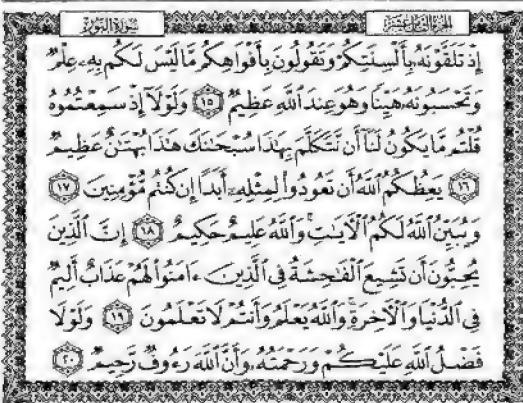 الجزء الثامن عشر
سورة النور
إِذْ تَلَقَّوْنَهُۥ بِأَلْسِنَتِكُمْ وَتَقُولُونَ بِأَفْوَاهِكُم مَّا لَيْسَ لَكُم بِهِۦ عِلْمٌ
وَتَحْسَبُونَهُۥ هَيِّنًا وَهُوَ عِندَ ٱللَّهِ عَظِيمٌ ١٥ وَلَوْلَآ إِذْ سَمِعْتُمُوهُ
قُلْتُم مَّا يَكُونُ لَنَآ أَن نَّتَكَلَّمَ بِهَٰذَا سُبْحَٰنَكَ هَٰذَا بُهْتَٰنٌ عَظِيمٌ
١٦ يَعِظُكُمُ ٱللَّهُ أَن تَعُودُوا۟ لِمِثْلِهِۦٓ أَبَدًا إِن كُنتُم مُّؤْمِنِينَ ١٧
وَيُبَيِّنُ ٱللَّهُ لَكُمُ ٱلْآيَٰتِ ۚ وَٱللَّهُ عَلِيمٌ حَكِيمٌ ١٨ إِنَّ ٱلَّذِينَ
يُحِبُّونَ أَن تَشِيعَ ٱلْفَٰحِشَةُ فِى ٱلَّذِينَ ءَامَنُوا۟ لَهُمْ عَذَابٌ أَلِيمٌ
فِى ٱلدُّنْيَا وَٱلْآخِرَةِ ۚ وَٱللَّهُ يَعْلَمُ وَأَنتُمْ لَا تَعْلَمُونَ ١٩ وَلَوْلَا
فَضْلُ ٱللَّهِ عَلَيْكُمْ وَرَحْمَتُهُۥ وَأَنَّ ٱللَّهَ رَءُوفٌ رَّحِيمٌ ٢٠